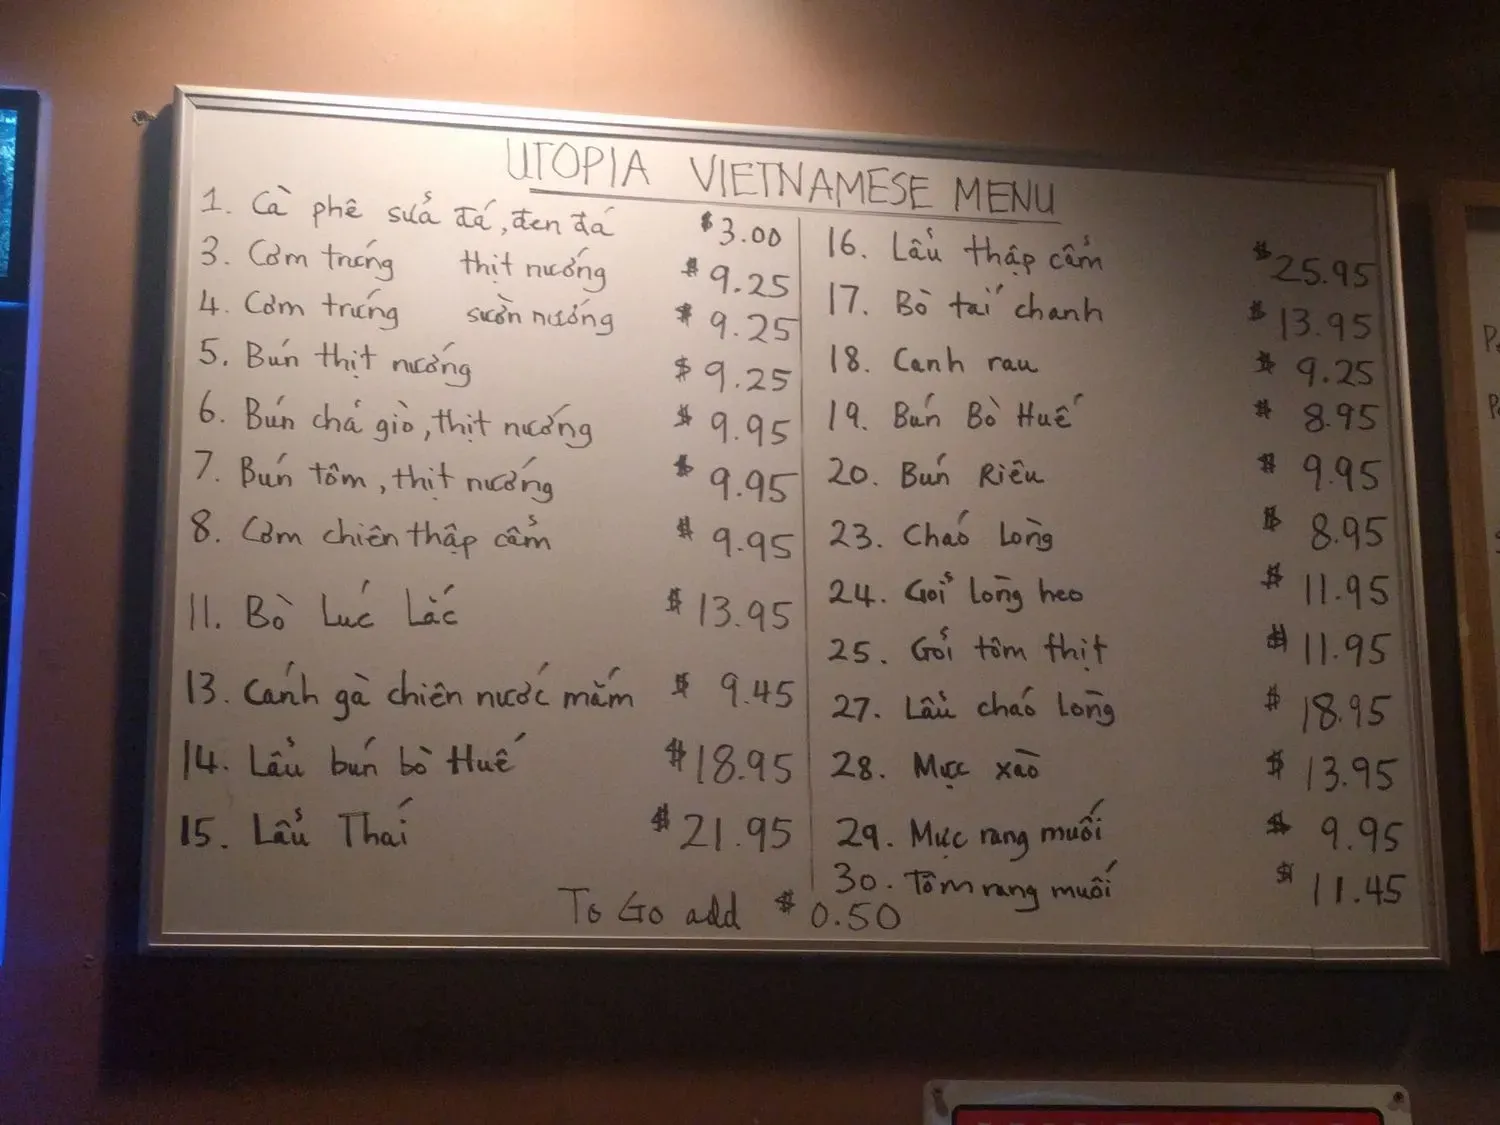 UTOPIA VIETNAMESE MENU
1. Cà phê sửa đá, đen đá $3.00
3. Cơm trứng thịt nướng $9.25
4. Cơm trứng sườn nướng $9.25
5. Bún thịt nướng $9.25
6. Bún chả giò, thịt nướng $9.95
7. Bún tôm, thịt nướng $9.95
8. Cơm chiên thập cẩm $9.95
11. Bò Lúc Lắc $13.95
13. Cánh gà chiên nước mắm $9.45
14. Lẩu bún bò Huế $18.95
15. Lẩu Thái $21.95
16. Lẩu thập cẩm $25.95
17. Bò tái chanh $13.95
18. Canh rau $9.25
19. Bún Bò Huế $8.95
20. Bún Riêu $9.95
23. Cháo Lòng $8.95
24. Gỏi lòng heo $11.95
25. Gỏi tôm thịt $11.95
27. Lẩu cháo lòng $18.95
28. Mực xào $13.95
29. Mực rang muối $9.95
30. Tôm rang muối $11.45
To Go add $0.50